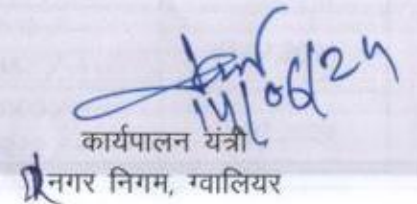 14/06/24
कार्यपालन यंत्री
नगर निगम, ग्वालियर